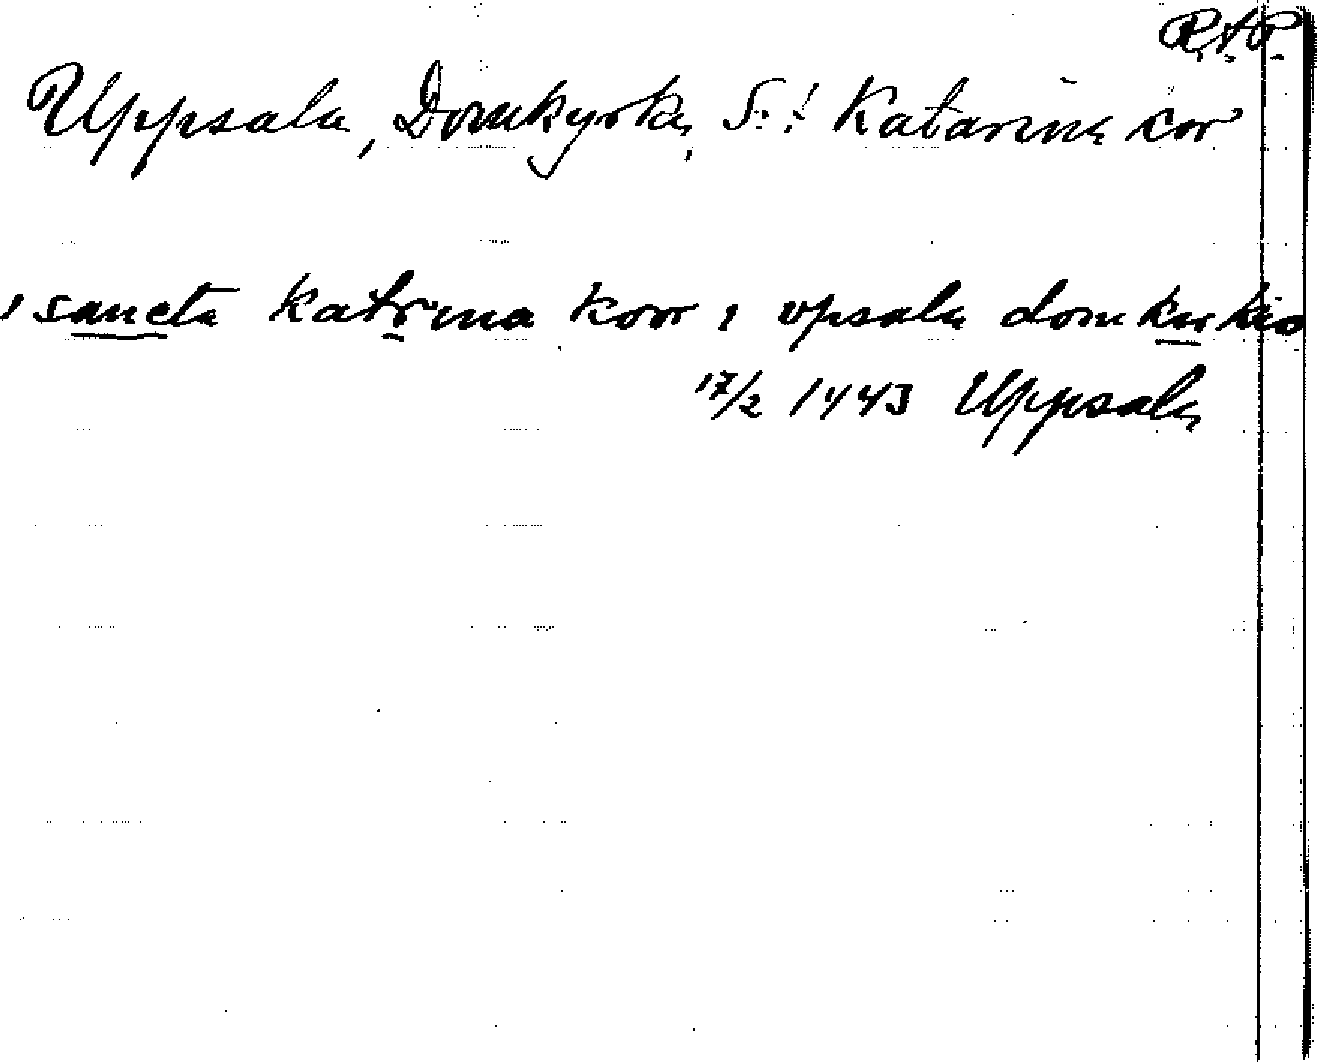 R.A.P.
Uppsala, Domkyrka, S:t Katarina kor
i sancta katrina koor i vpsala domkirkio
17/2 1443 Uppsala